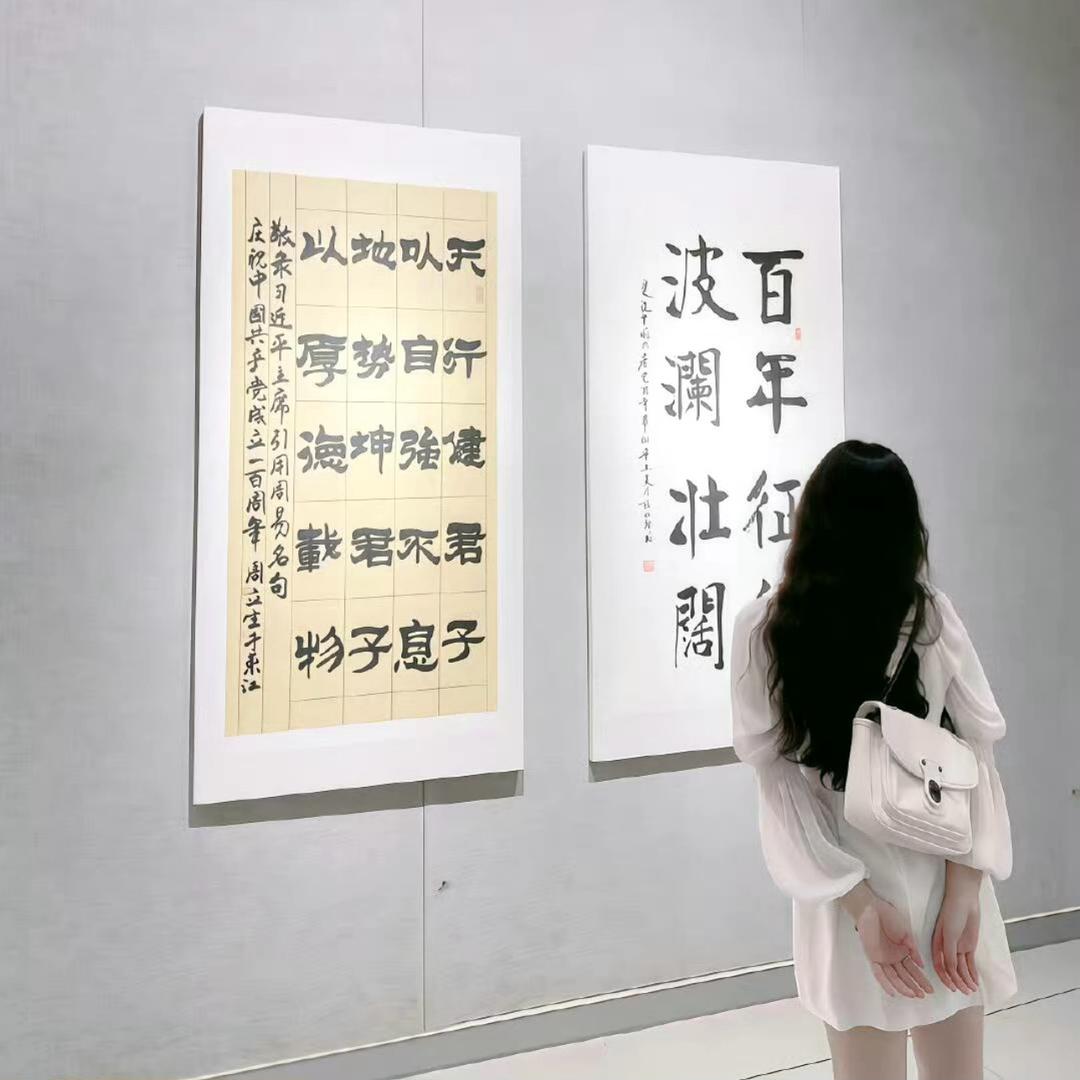 天行健君子
以自強不息
地势坤君子
以厚德載物
敬录习近平主席引用周易名句
庆祝中国共产党成立一百周年 周立生于東江
百年征
波澜壮阔